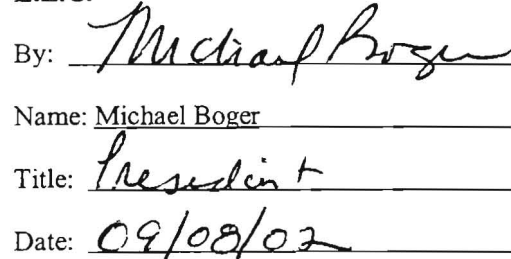 By: Michael Boger
Name: Michael Boger
Title: President
Date: 09/08/02